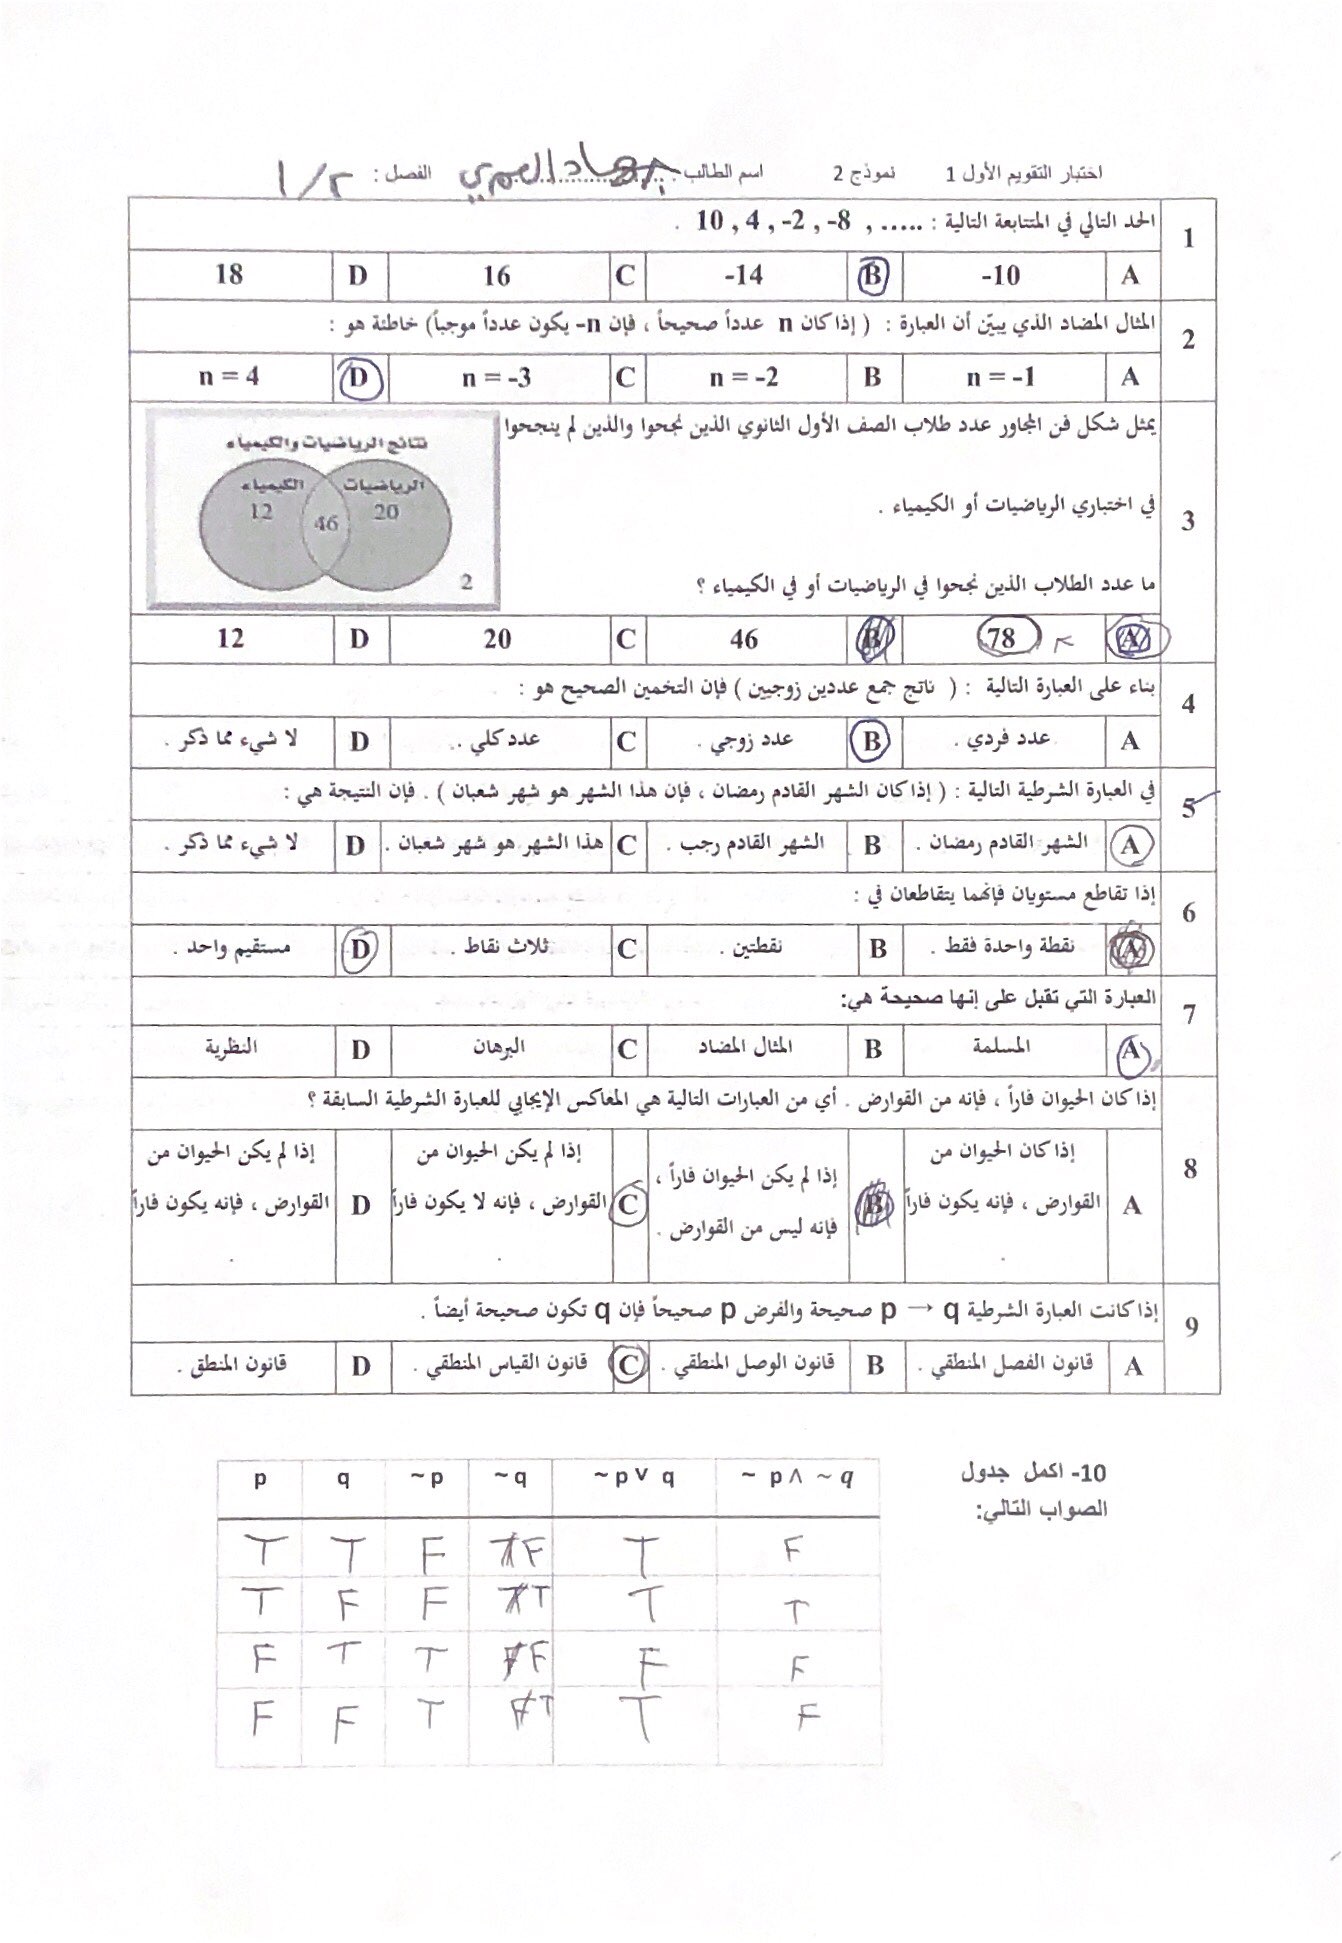 اختبار التقويم الأول 1 نموذج 2 اسم الطالب : جهاد العمري الفصل : ١/٢
1 الحد التالي في المتتابعة التالية : 10 , 4 , -2 , -8 , ..... .
A -10 B -14 C 16 D 18
2 المثال المضاد الذي يبيّن أن العبارة : ( إذا كان n عدداً صحيحاً ، فإن n- يكون عدداً موجباً) خاطئة هو :
A n = -1 B n = -2 C n = -3 D n = 4
3 يمثل شكل فن المجاور عدد طلاب الصف الأول الثانوي الذين نجحوا والذين لم ينجحوا
في اختباري الرياضيات أو الكيمياء .
ما عدد الطلاب الذين نجحوا في الرياضيات أو في الكيمياء ؟
نتائج الرياضيات والكيمياء
الرياضيات الكيمياء
20 46 12
2
A 78 B 46 C 20 D 12
4 بناء على العبارة التالية : ( ناتج جمع عددين زوجيين ) فإن التخمين الصحيح هو :
A عدد فردي . B عدد زوجي . C عدد كلي . D لا شيء مما ذكر .
5 في العبارة الشرطية التالية : ( إذا كان الشهر القادم رمضان ، فإن هذا الشهر هو شهر شعبان ) . فإن النتيجة هي :
A الشهر القادم رمضان . B الشهر القادم رجب . C هذا الشهر هو شهر شعبان . D لا شيء مما ذكر .
6 إذا تقاطع مستويان فإنهما يتقاطعان في :
A نقطة واحدة فقط . B نقطتين . C ثلاث نقاط . D مستقيم واحد .
7 العبارة التي تقبل على إنها صحيحة هي:
A المسلمة B المثال المضاد C البرهان D النظرية
8 إذا كان الحيوان فاراً ، فإنه من القوارض . أي من العبارات التالية هي المعاكس الإيجابي للعبارة الشرطية السابقة ؟
A إذا كان الحيوان من
القوارض ، فإنه يكون فاراً
.
B إذا لم يكن الحيوان فاراً ،
فإنه ليس من القوارض .
C إذا لم يكن الحيوان من
القوارض ، فإنه لا يكون فاراً
.
D إذا لم يكن الحيوان من
القوارض ، فإنه يكون فاراً
.
9 إذا كانت العبارة الشرطية p → q صحيحة والفرض p صحيحاً فإن q تكون صحيحة أيضاً .
A قانون الفصل المنطقي . B قانون الوصل المنطقي . C قانون القياس المنطقي . D قانون المنطق .
10- اكمل جدول
الصواب التالي:
p q ~p ~q ~p ∨ q ~ p ∧ ~q
T T F F T F
T F F T T T
F T T F F F
F F T T T F